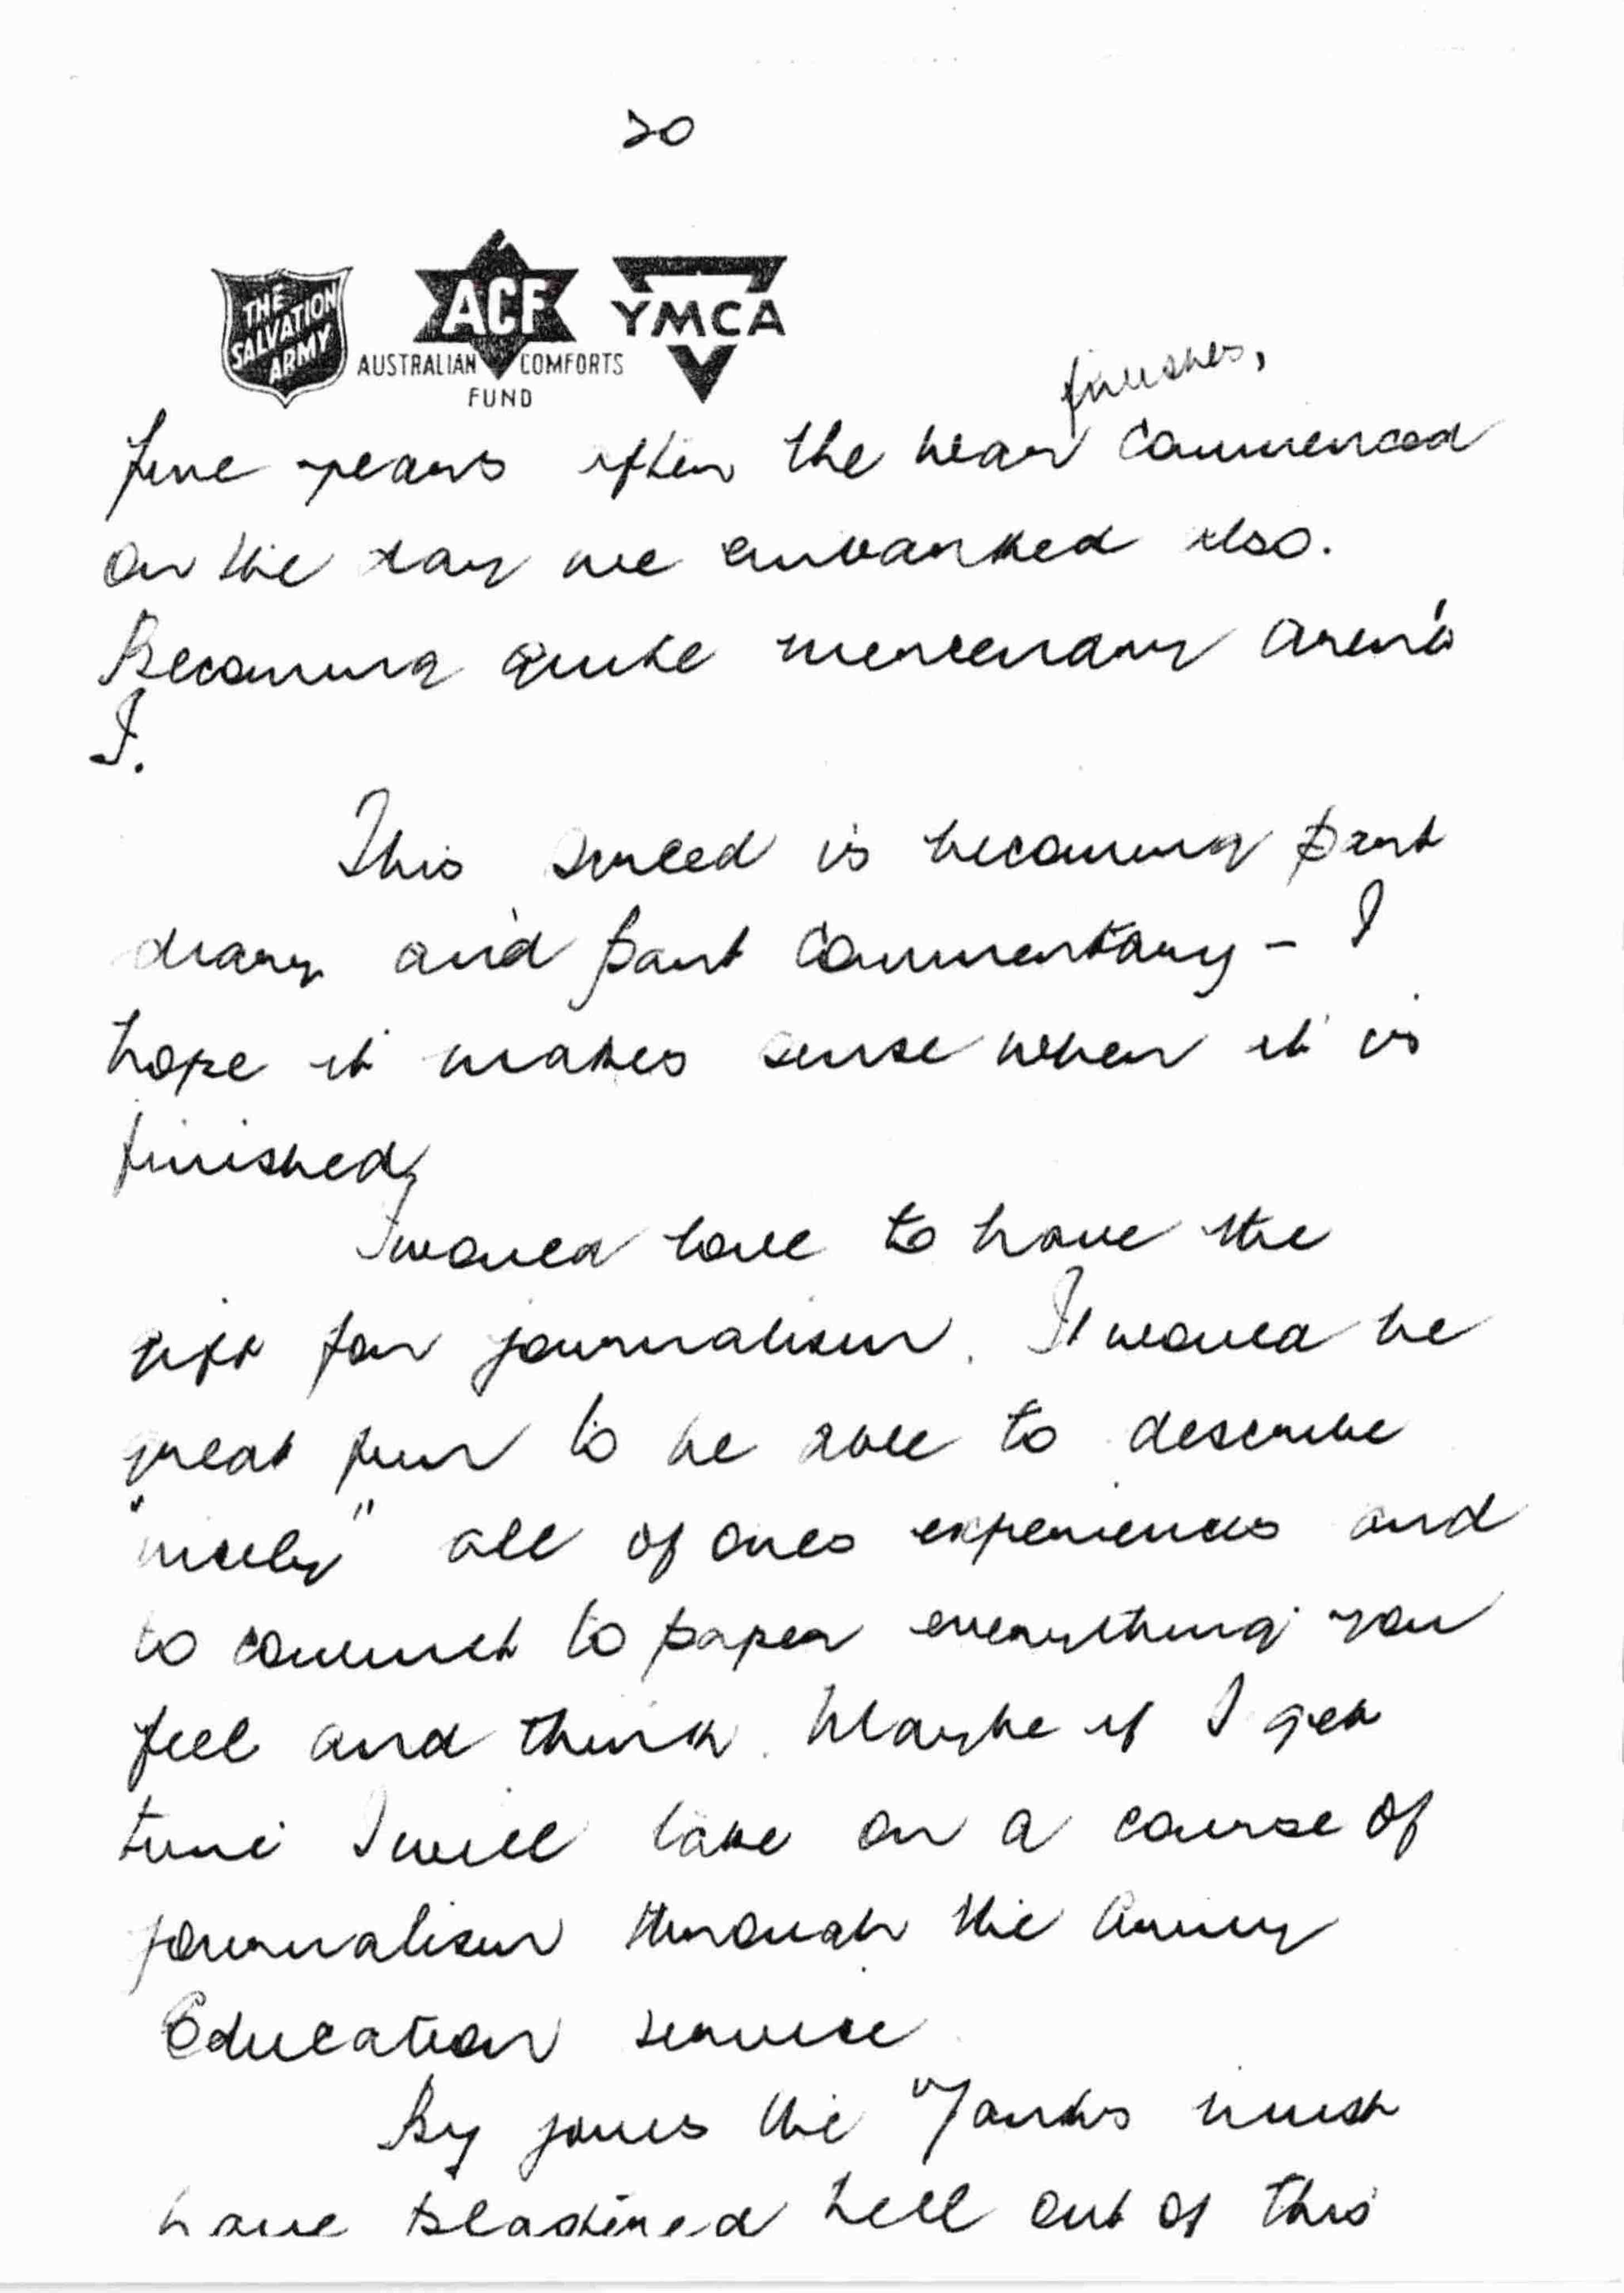 20
THE
SALVATION
ARMY
ACF
AUSTRALIAN COMFORTS
FUND
YMCA
finishes,
five years after the war commenced
on the day we embarked also.
Becoming quite mercenary aren't
I.
This screed is becoming part
diary and part commentary - I
hope it makes sense when it is
finished,
I would love to have the
gift for journalism. It would be
great fun to be able to describe
"nicely" all of ones experiences and
to commit to paper everything you
feel and think. Maybe if I get
time I will take on a course of
journalism through the Army
Education service.
By joves the "Yanks must
have blastered hell out of this